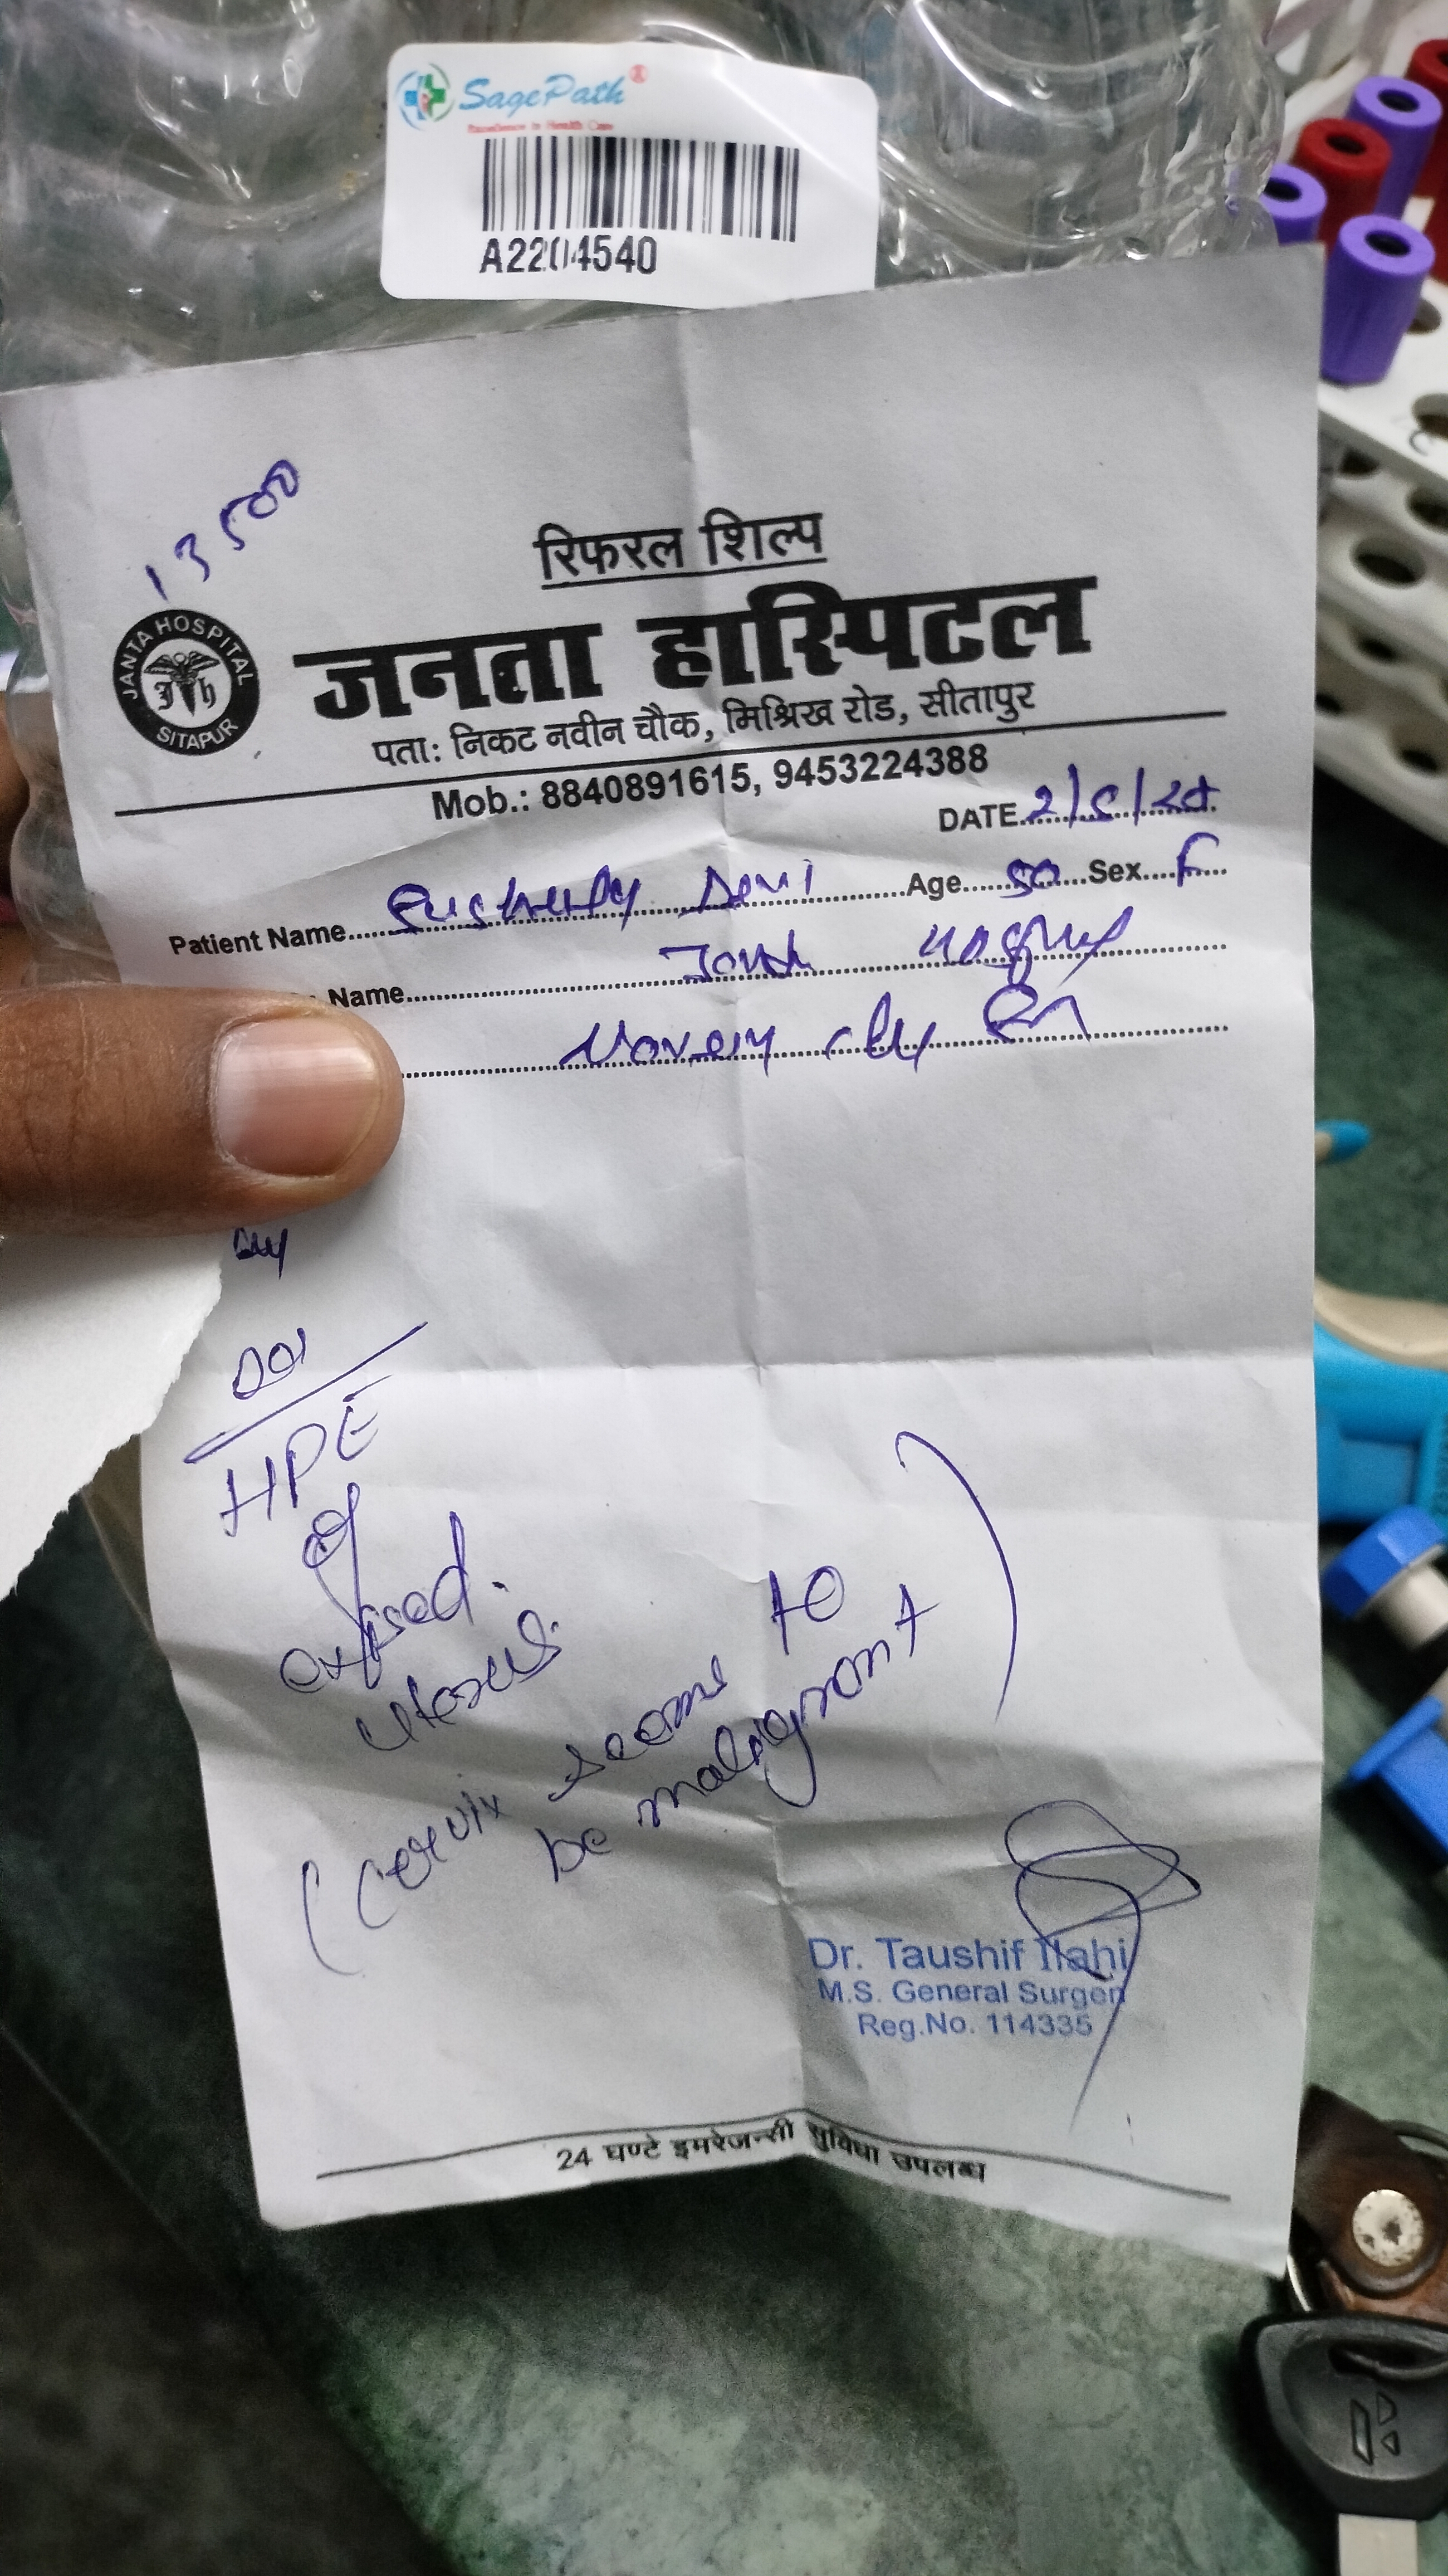 SagePath®
Excellence In Health Care
A2204540
13500
रिफरल शिल्प
JANTA HOSPITAL
SITAPUR
जनता हास्पिटल
पता: निकट नवीन चौक, मिश्रिख रोड, सीतापुर
Mob.: 8840891615, 9453224388
DATE
Patient Name Devi Age 50 Sex F
Name
HPE
of
uterus
(cervix seems to
be malignant)
Dr. Taushif Ilahi
M.S. General Surgen
Reg.No. 114335
24 घण्टे इमरेजन्सी सुविधा उपलब्ध